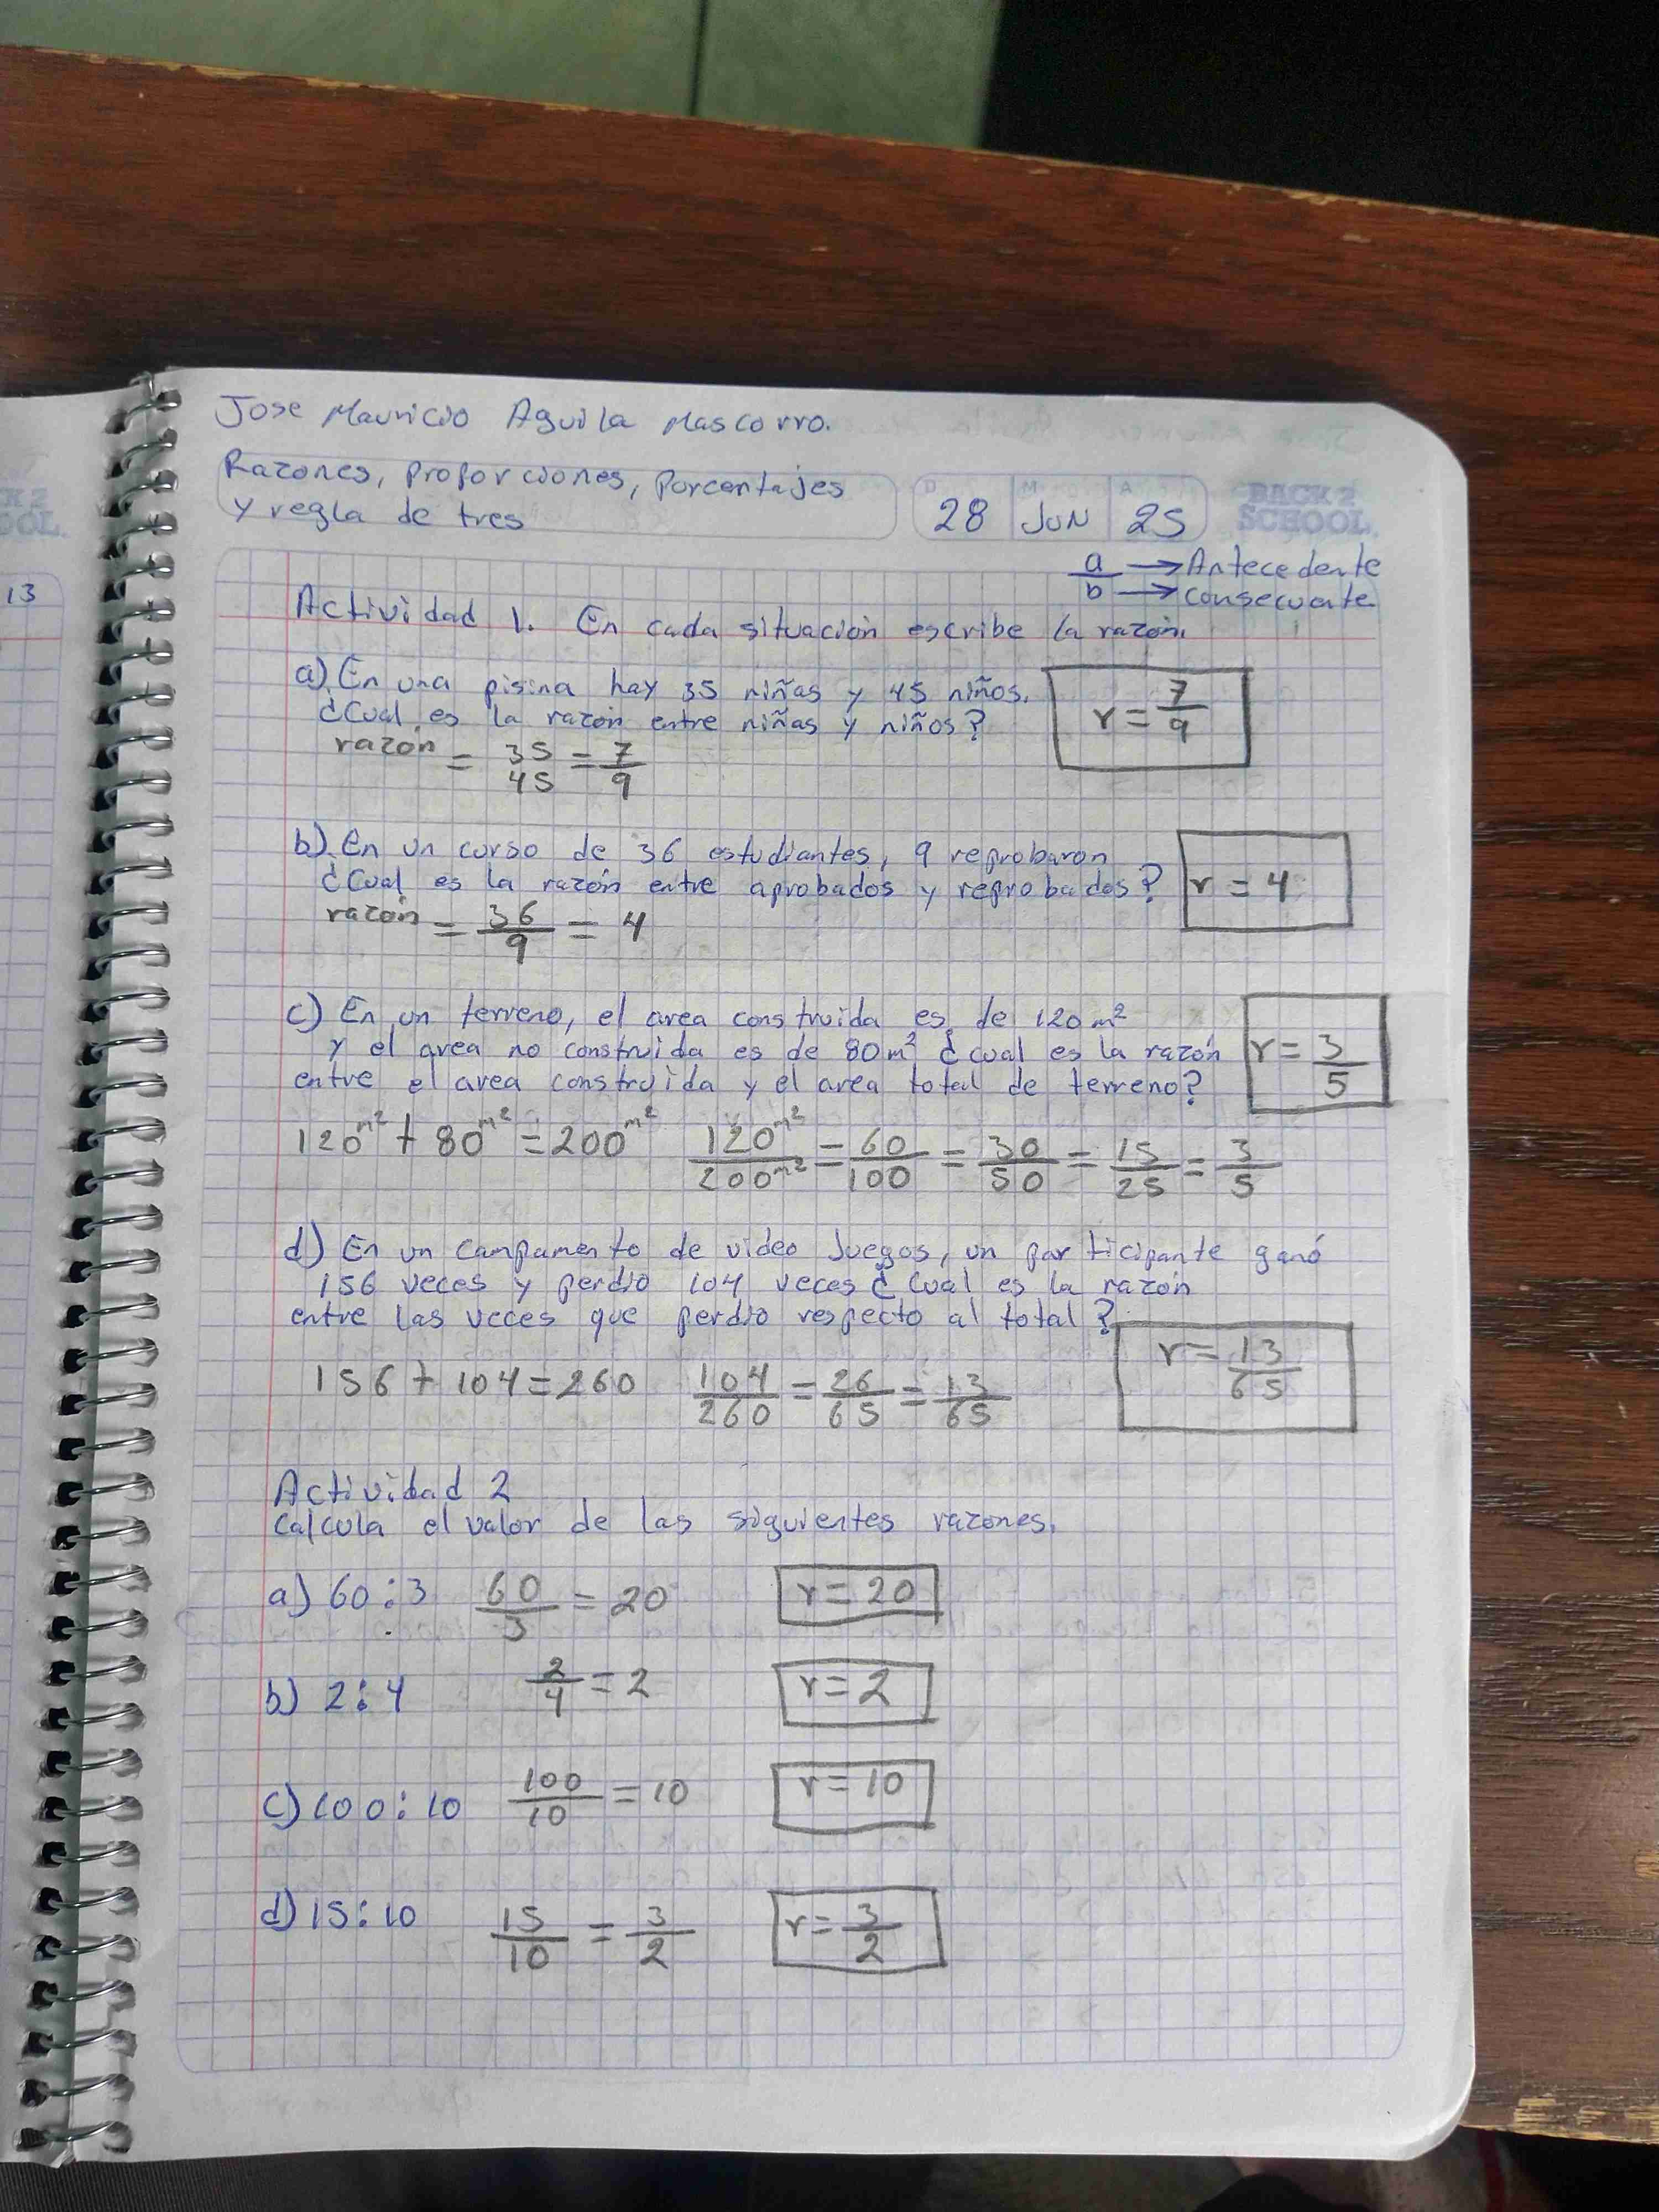 Jose Mauricio Aguila Mascorro.
Razones, proporciones, porcentajes
y regla de tres
D M A
28 JUN 25
BACK 2
SCHOOL.
K 2
OOL.
13
a → Antecedente
b → consecuente
Actividad 1. En cada situación escribe la razón.
a) En una pisina hay 35 niñas y 45 niños.
¿Cual es la razón entre niñas y niños?
r = 7/9
razón = 35/45 = 7/9
b) En un curso de 36 estudiantes, 9 reprobaron
¿Cual es la razón entre aprobados y reprobados?
r = 4
razón = 36/9 = 4
c) En un terreno, el area construida es de 120 m²
y el area no construida es de 80m² ¿cual es la razón
entre el area construida y el area total de terreno?
r = 3/5
120m² + 80m² = 200m² 120m²/200m² = 60/100 = 30/50 = 15/25 = 3/5
d) En un campamento de video Juegos, un participante ganó
156 veces y perdio 104 veces ¿Cual es la razón
entre las veces que perdio respecto al total?
r = 13/65
156 + 104 = 260 104/260 = 26/65 = 13/65
Actividad 2
Calcula el valor de las siguientes razones.
a) 60:3 60/3 = 20 r = 20
b) 2:4 2/4 = 2 r = 2
c) 100:10 100/10 = 10 r = 10
d) 15:10 15/10 = 3/2 r = 3/2